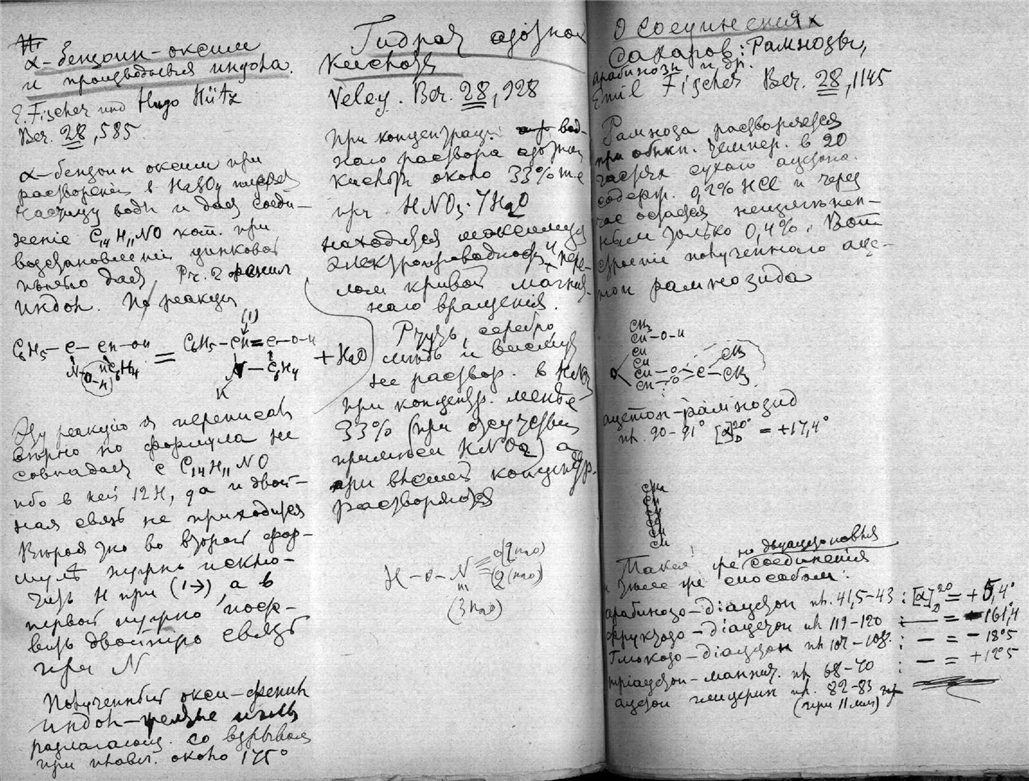 α-бензоин-оксим
и производныя индола.
E. Fischer und Hugo Hütz
Ber. 28, 585.
α-бензоин оксим при
растворении в H2SO4 теряет
частицу воды и дает соеди-
нение C14H11NO кот. при
возстановлении цинковой
пылью дает Pr. 2 фенил
индол. По реакции
C6H5-C-CH-OH = C6H5-CH=C-O-H + H2O
N C6H4 N-C6H4
O-H H
(1)
Эту реакцию я переписал
верно но формула не
совпадает с C14H11NO
ибо в ней 12H, да и двой-
ная связь не приходится
при (1→), а в
первой нужно поста-
вить двойную связь
при N
Полученный окси-фенил
индол
разлагающ. со взрывом
при плавл. около 175°
Гидрат азотной
кислоты
Veley. Ber. 28, 928
При концентрац. вод-
наго раствора азотной
кислоты около 33% т.е
при HNO3·7H2O
находится максимум
электропроводности, пере-
лом кривой магнит-
наго вращения.
Ртуть, серебро
медь и висмут
не раствор. в HNO3
при концентр. менее
33% (при отсутствии
примеси HNO2) а
при высшей концентр.
растворяются
H-O-N
(3H2O)
О соединениях
сахаров: Рамнозы,
арабинозы и др.
Emil Fischer Ber. 28, 1145
Рамноза растворяется
при обыкн. темпер. в 20
частях сухого ацетона.
содерж. 0,2% HCl и через
час остается неизменен-
ным только 0,4%. Вот
строение полученнаго аце-
тон рамнозида
CH3
CH-O-H
CH
CH
CH-O-C CH3
CH-O CH3
O
ацетон-рамнозид
пл. 90-91° [α]D20° = +17,4°
Такия же но двуацетоновыя
соединения
и таким же способом:
арабинозо-діацетон пл. 41,5-43 : [α]D20 = +5,4°
Фруктозо-діацетон пл 119-120 : — = -161,4
Глюкозо-діацетон пл 107-108. : — = -18°5
тріацетон-маннит. пл 68-70 : — = +12°5
ацетон глицерин пл. 82-83
(при 11 мм)